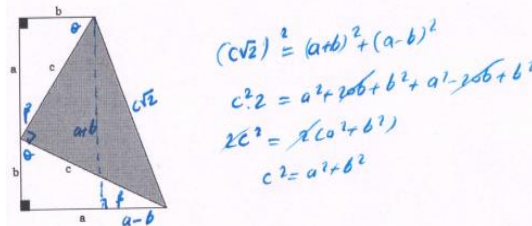 b
θ
a
c
c√2
β
a+b
θ
b
c
β
a
a-b
(c√2)² = (a+b)² + (a-b)²
c².2 = a² + 2ab + b² + a² - 2ab + b²
2c² = 2(a² + b²)
c² = a² + b²